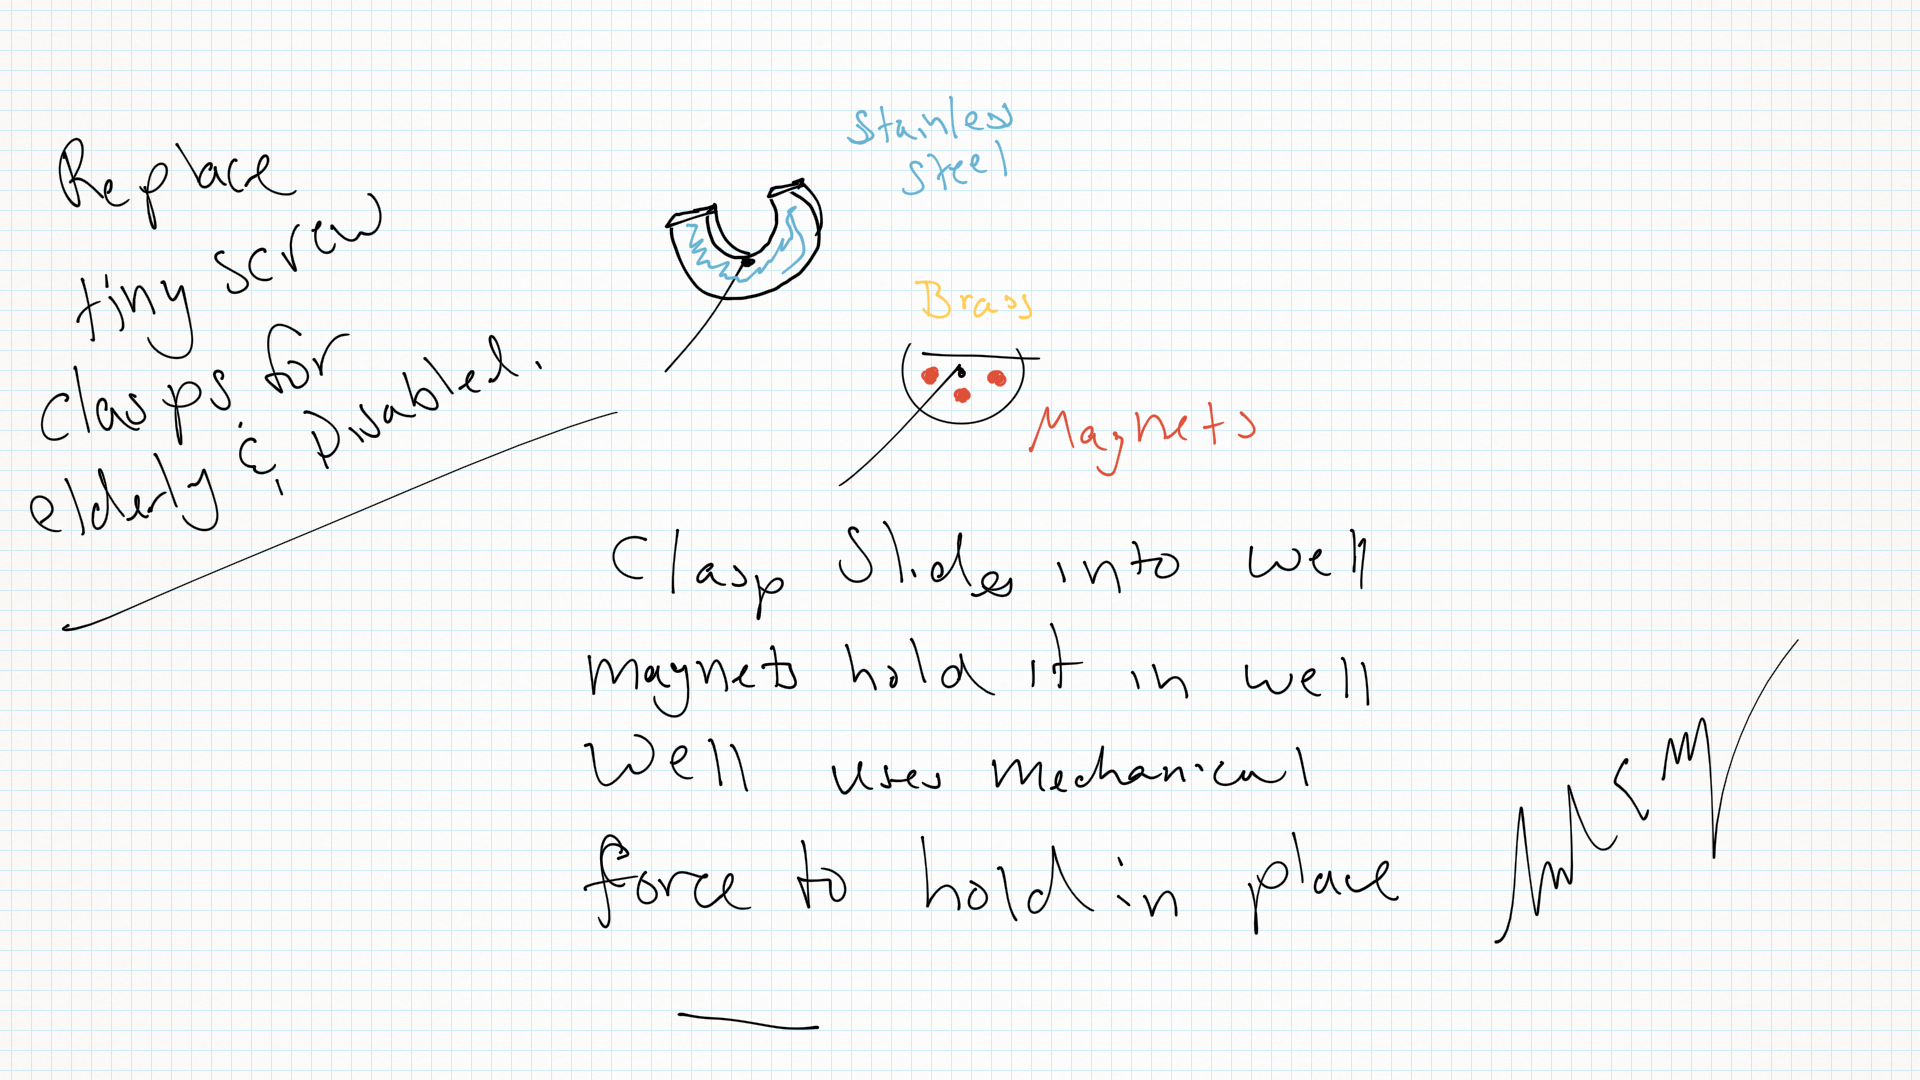 Replace
tiny screw
clasps for
elderly & Disabled.
Stainless
Steel
Brass
Magnets
Clasp Slides into well
magnets hold it in well
Well uses mechanical
force to hold in place